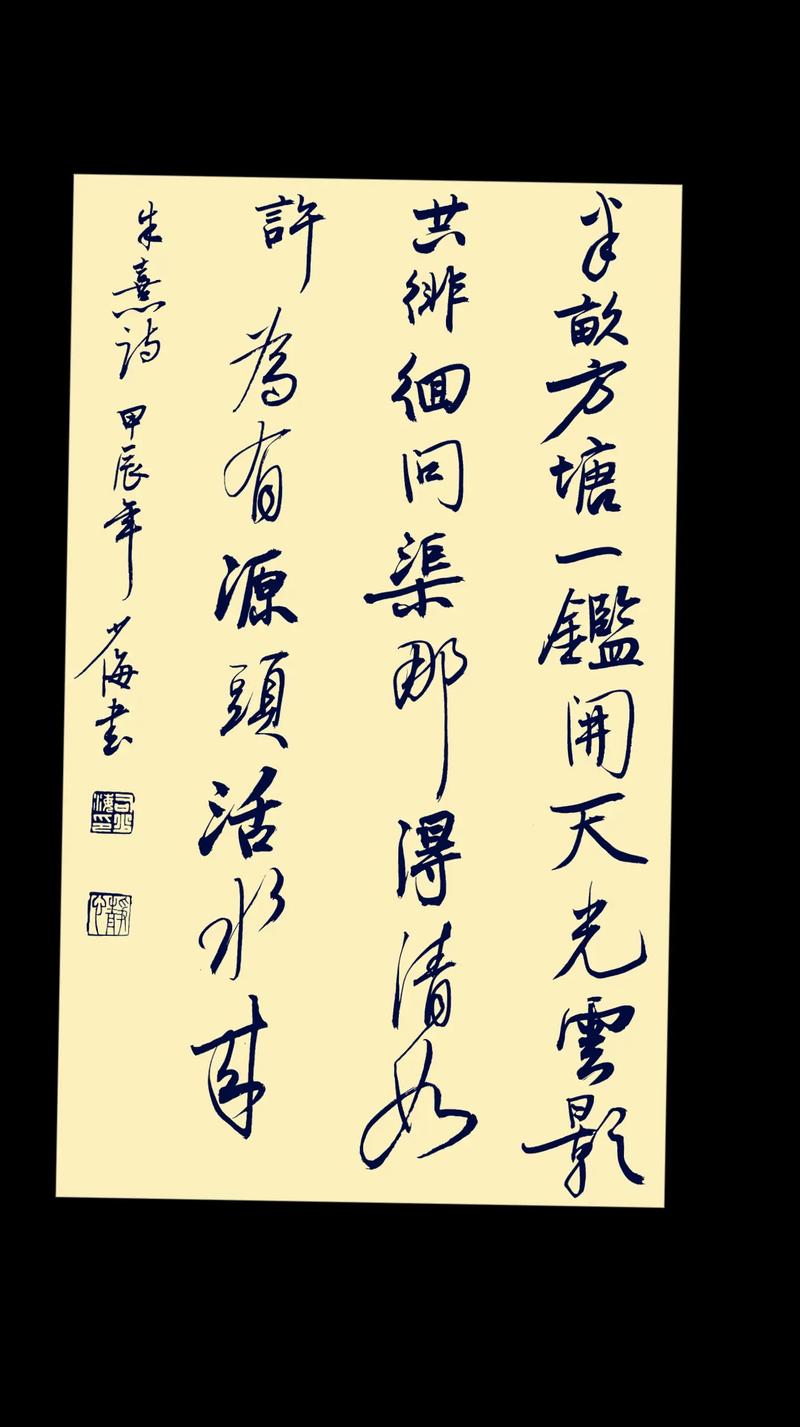 半畝方塘一鑑開天光雲影
共徘徊問渠那得清如
許為有源頭活水来
朱熹詩甲辰年少海書